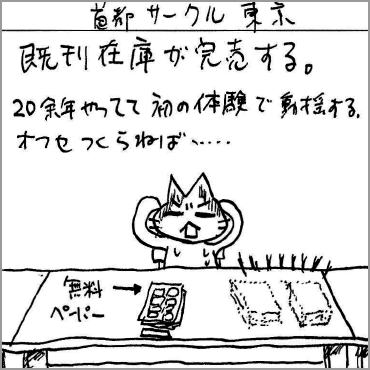 首都サークル 東京
既刊在庫が完売する。
20余年やってて初の体験で動揺する。
オフセつくらねば……
無料
ペーパー